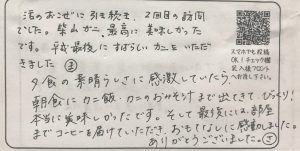 昨年のお泊に引き続き、2回目の訪問
でした。柴山ガニ、最高に美味しかった
です。平成最後にすばらしいカニをいただ
きました ま
夕食の素晴らしさに感激していたら
朝食にカニ飯・カニのみそ汁まで出てきてびっくり!
本当に美味しかったです。そして最後には、部屋
までコーヒーを届けていただき、おもてなしに感動しました。
ありがとうございました。さ
スマホでも投稿
OK!チェック欄
記入後フロント
へお渡し下さい。